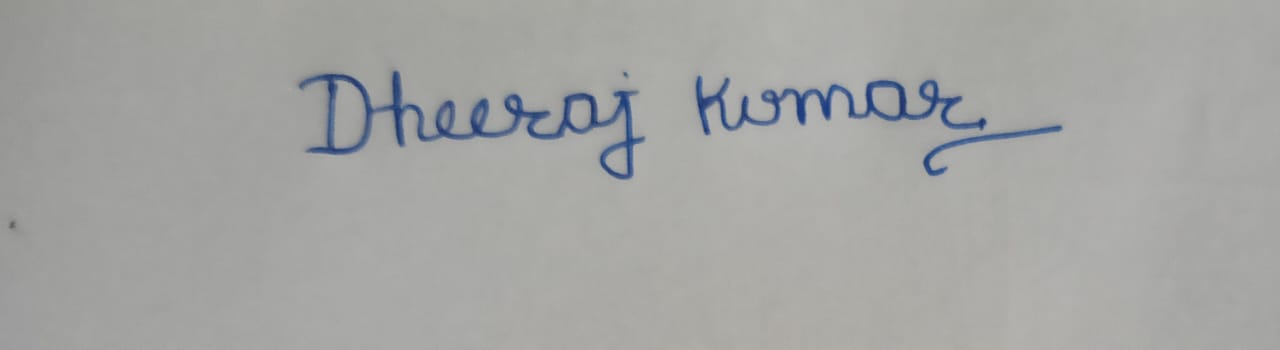 Dheeraj Kumar